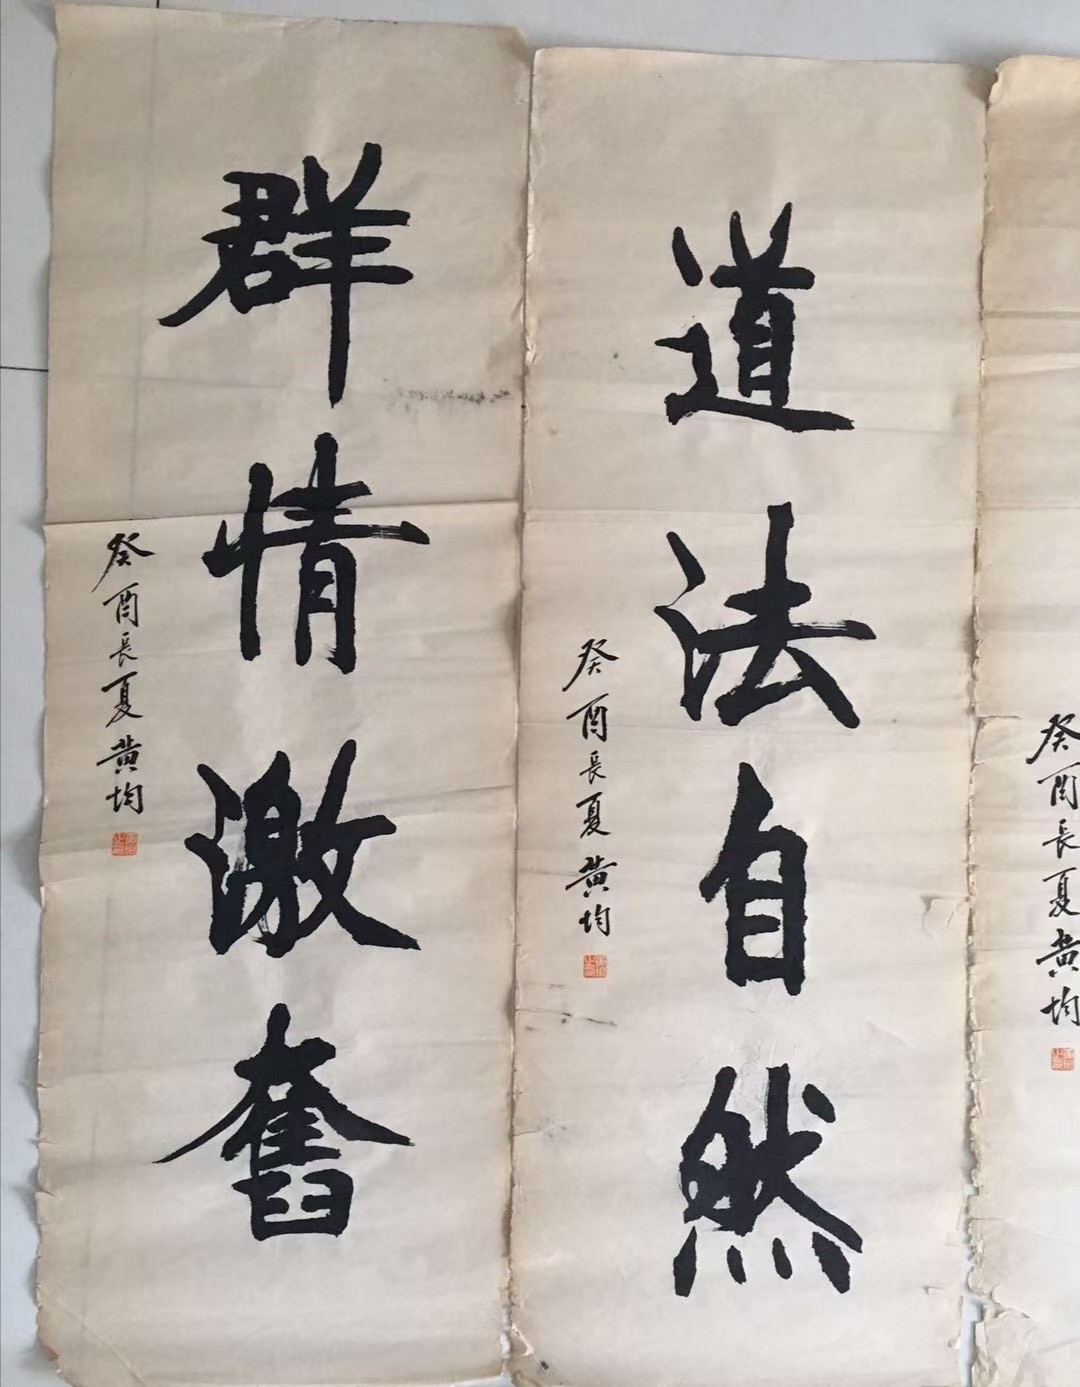 癸酉长夏黄均
道法自然
癸酉长夏黄均
群情激奮
癸酉长夏黄均